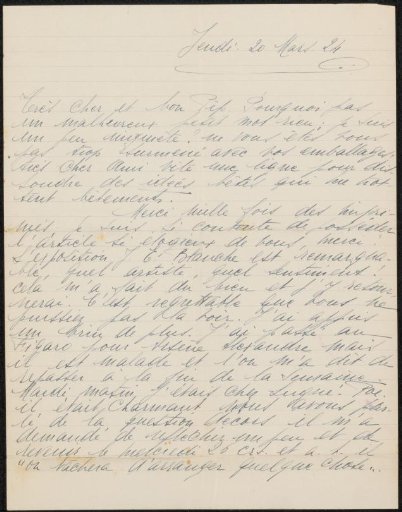 Jeudi 20 Mars 24
Très cher et bon Pép Pourquoi pas
un malheureux petit mot rien; je suis
un peu inquiète! ne vous êtes vous
pas trop surmené avec vos emballages
très cher Ami vite une ligne pour dis
soudre des idées bêtes qui me
bêtement.
Merci mille fois des impri-
més, je suis si contente de posséder
l'article si élogieux de vous, merci
L'exposition J. E. Blanche est remarqua-
ble, quel artiste, quel sentiment!
cela m'a fait du bien et j'y retour
nerai. C'est regrettable que vous ne
puissiez pas la voir. J'ai appris
un brin de plus. J'ai passé au
Figaro pour Arsène Alexandre mais
il est malade et l'on m'a dit de
repasser à la fin de la semaine.
Mardi matin j'étais chez
il était charmant nous avons par
lé de la question décors il m'a
demandé de réfléchir un peu et de
revenir le mercredi 26 crs. et a
"on tachera d'arranger quelque chose".